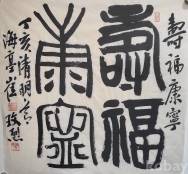 壽福康寧
壽福
康寧
丁亥清明
海亭崔